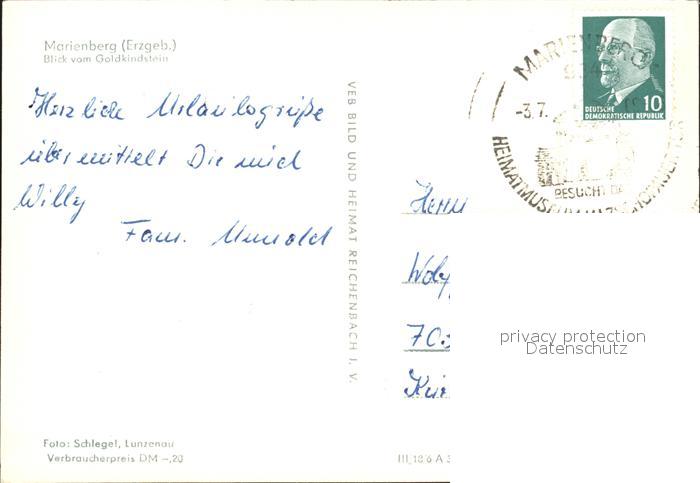 Marienberg (Erzgeb.)
Blick vom Goldkindstein
Herzliche Urlaubsgrüße
übermittelt Dir mich
Willy
Fam.
VEB BILD UND HEIMAT REICHENBACH I. V.
Foto: Schlegel, Lunzenau
Verbraucherpreis DM –,20
III 18 6 A
MARIENBERG
-3.7.
HEIMATMUSEUM
BESUCHT DA
DEUTSCHE
DEMOKRATISCHE REPUBLIK
10
Herrn
70
privacy protection
Datenschutz